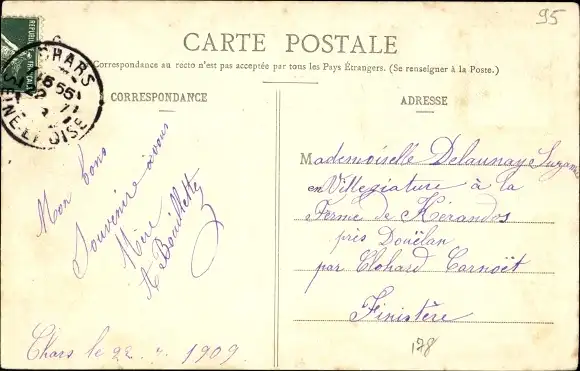 95
CARTE POSTALE
Correspondance au recto n'est pas acceptée par tous les Pays Étrangers. (Se renseigner à la Poste.)
CHARS
SEINE-ET-OISE
CORRESPONDANCE
Mon bons
Souvenire à vous
Mère
A Bouillette
Chars le 22. 7. 1909.
ADRESSE
Mademoiselle Delaunay Suzanne
en Villegiature à la
Ferme de Kérandos
près Douëlan
par Clohard Carnoët
Finistère
178